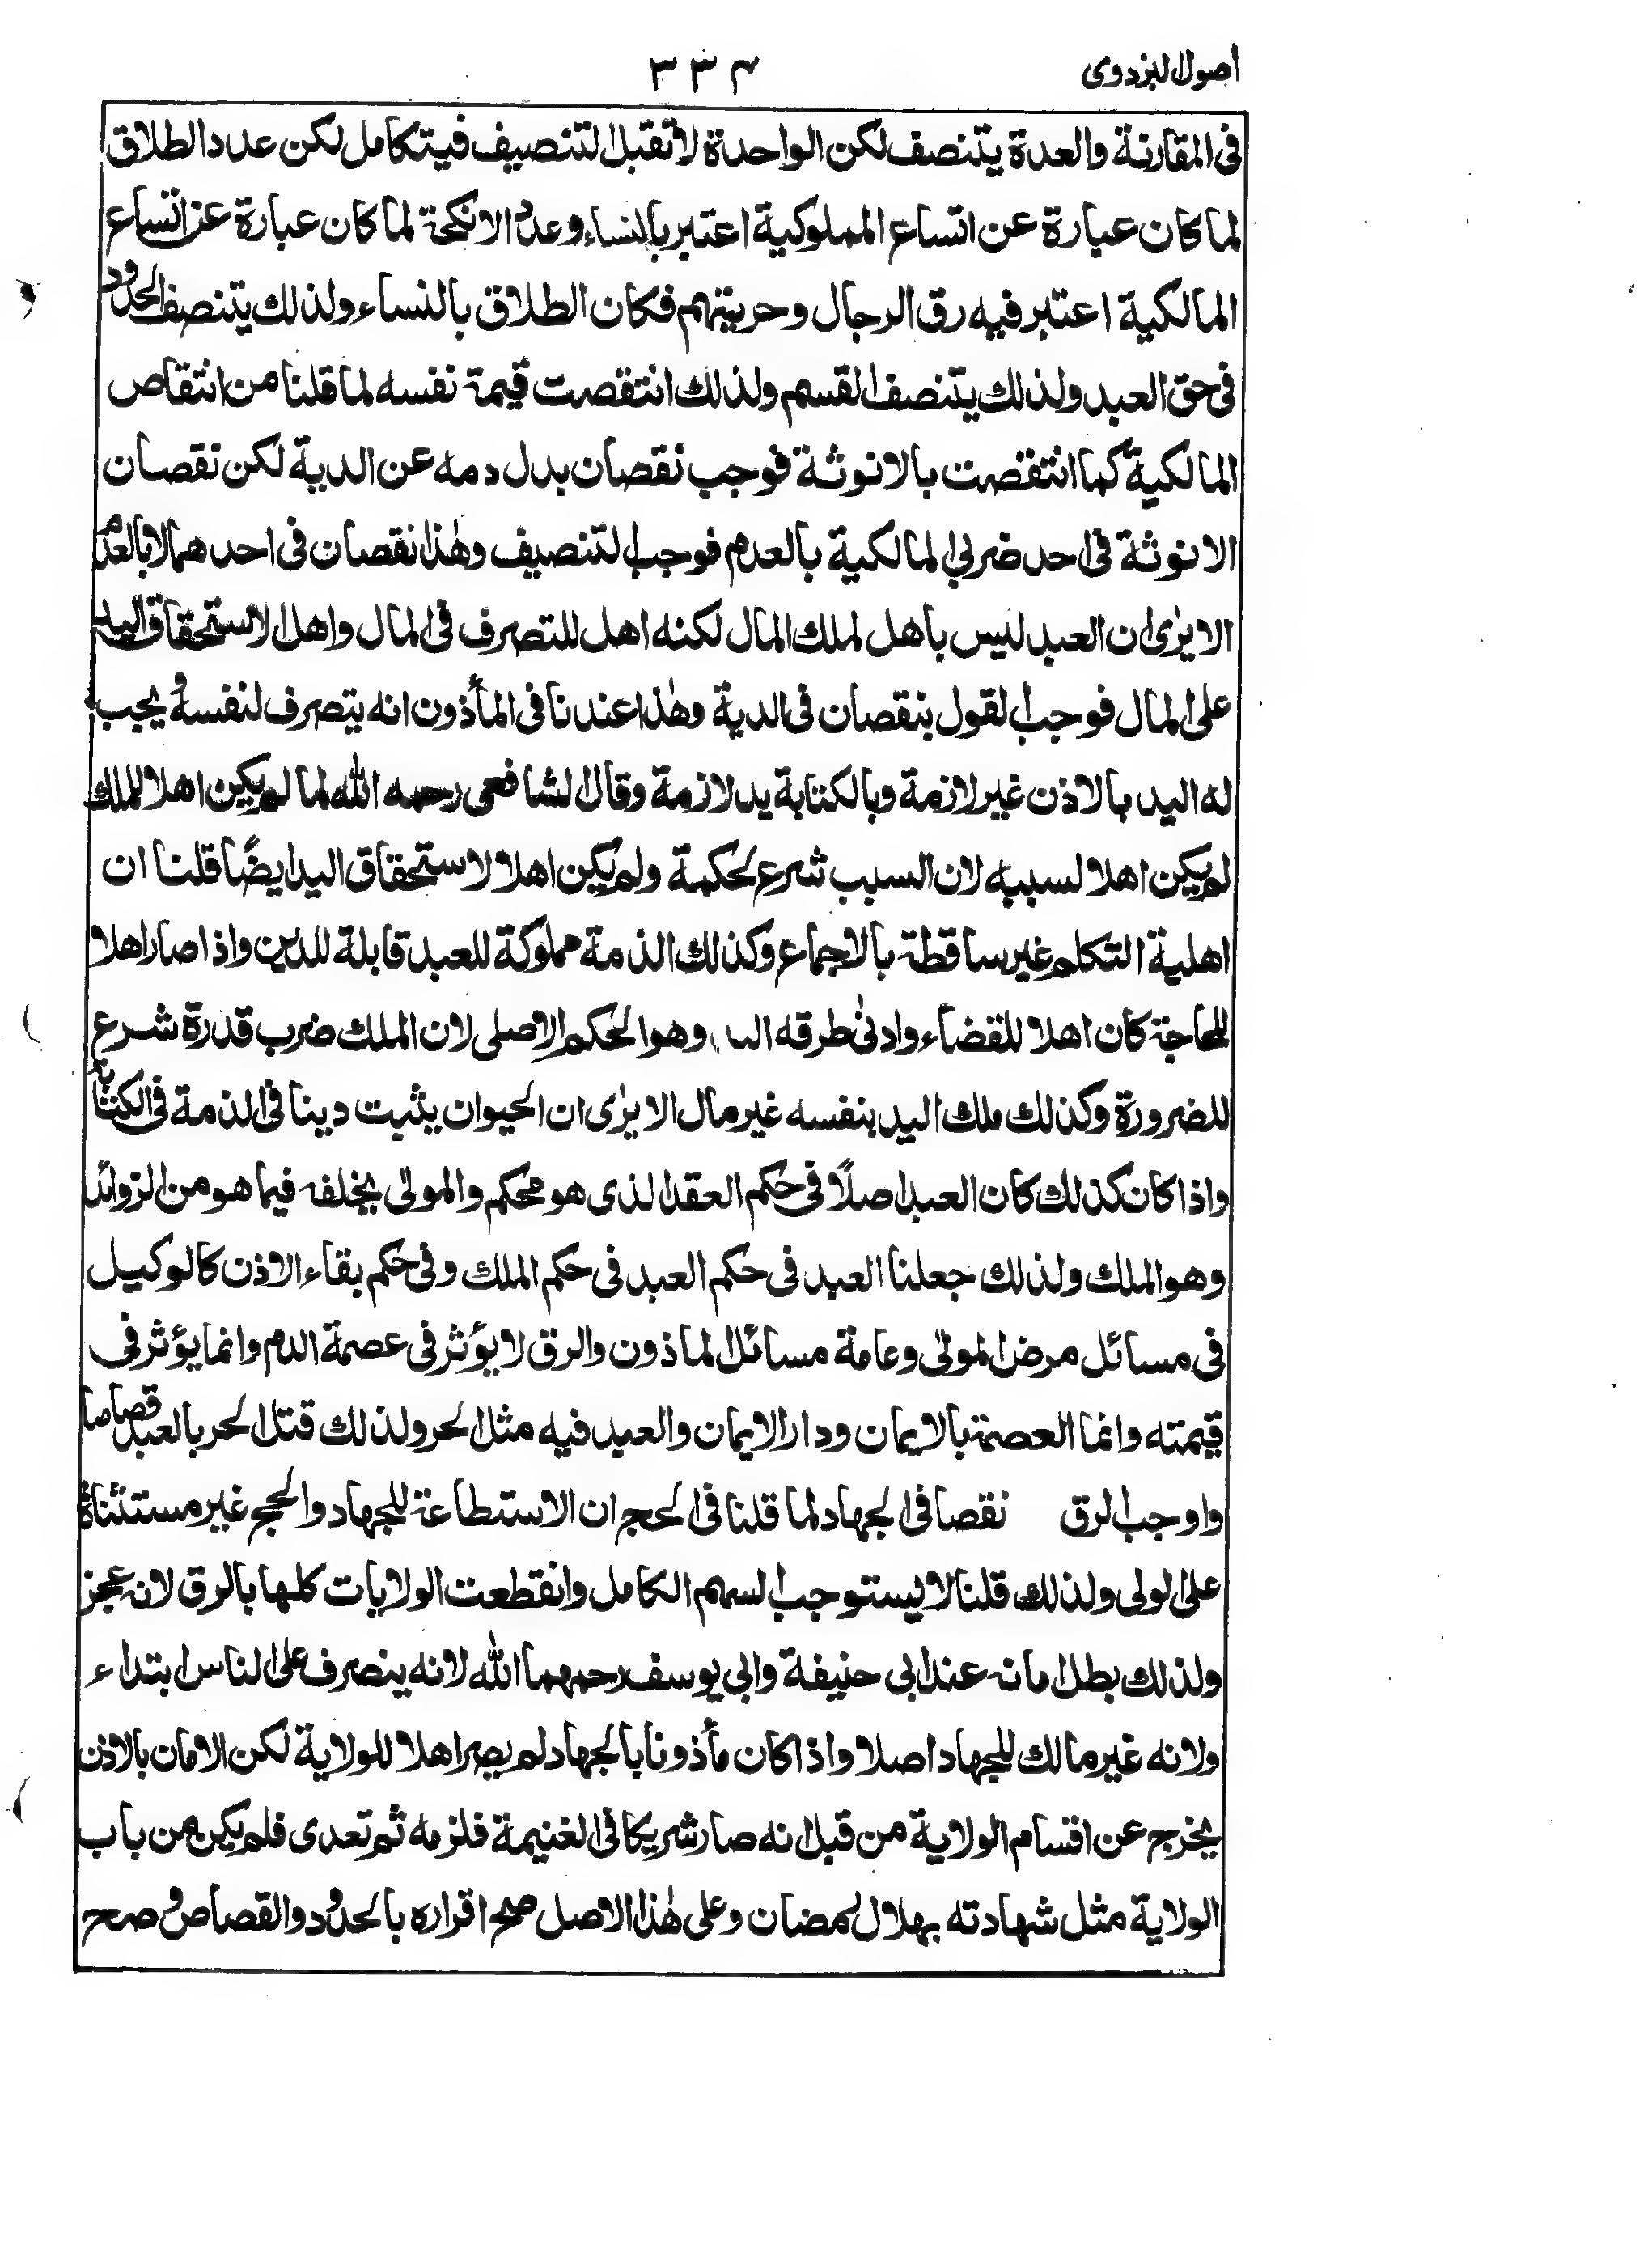 اصول البزدوی
۳۳۴
فی المقارنة والعدة یتنصف لکن الواحدة لاتقبل التنصیف فیتکامل لکن عدد الطلاق
لما کان عبارة عن اتساع المملوکیة اعتبر بالنساء وعدد الانکحة لما کان عبارة عن اتساع
المالکیة اعتبر فیه رق الرجال وحریتهم فکان الطلاق بالنساء ولذلك یتنصف الحدود
فی حق العبد ولذلك یتنصف القسم ولذلك انتقصت قیمة نفسه لما قلنا من انتقاص
المالکیة کما انتقصت بالانوثة فوجب نقصان بدل دمه عن الدیة لکن نقصان
الانوثة فی احد ضربی المالکیة بالعدم فوجب التنصیف وهٰذا نقصان فی احدهما لا بالعدم
الا یرٰی ان العبد لیس باهل لملك المال لکنه اهل للتصرف فی المال واهل لاستحقاق الید
علی المال فوجب القول بنقصان فی الدیة وهٰذا عندنا فی المأذون انه یتصرف لنفسه ویجب
له الید بالاذن غیر لازمة وبالکتابة ید لازمة وقال الشافعی رحمه الله لما لم یکن اهلا للملك
لم یکن اهلا لسببه لان السبب شرع لحکمة ولم یکن اهلا لاستحقاق الید ایضًا قلنا ان
اهلیة التکلم غیر ساقطة بالاجماع وکذلك الذمة مملوکة للعبد قابلة للدین واذا صار اهلا
للحاجة کان اهلا للقضاء وادنٰی طرقه الید وهو الحکم الاصلی لان الملك ضرب قدرة شرع
للضرورة وکذلك ملك الید بنفسه غیر مال الا یرٰی ان الحیوان یثبت دینا فی الذمة فی الکتابة
واذا کان کذلك کان العبد اصلًا فی حکم العقد الذی هو محکم والمولی یخلفه فیما هو من الزوائد
وهو الملك ولذلك جعلنا العبد فی حکم العبد فی حکم الملك وفی حکم بقاء الاذن کالوکیل
فی مسائل مرض المولی وعامة مسائل الماذون والرق لا یؤثر فی عصمة الدم وانما یؤثر فی
قیمته وانما العصمة بالایمان ودار الایمان والعبد فیه مثل الحر ولذلك قتل الحر بالعبد قصاصا
واوجب الرق نقصا فی الجهاد لما قلنا فی الحج ان الاستطاعة للجهاد والحج غیر مستثناة
علی لولی ولذلك قلنا لا یستوجب السهم الکامل وانقطعت الولایات کلها بالرق لانه عجز
ولذلك بطل امانه عند ابی حنیفة وابی یوسف رحمهما الله لانه ینصرف علی الناس ابتداء
ولانه غیر مالك للجهاد اصلا واذا کان مأذونا بالجهاد لم یصر اهلا للولایة لکن الامان بالاذن
یخرج عن اقسام الولایة من قبل انه صار شریکا فی الغنیمة فلزمه ثم تعدی فلم یکن من باب
الولایة مثل شهادته بهلال رمضان وعلی هٰذا الاصل صح اقراره بالحدود والقصاص وصح